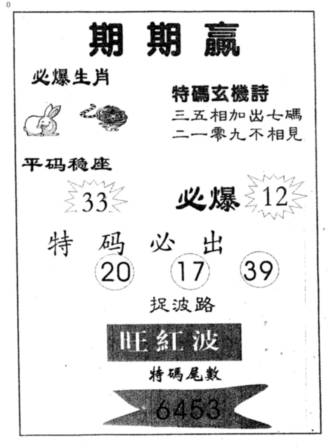 0
期期赢
必爆生肖
特碼玄機詩
三五相加出七碼
二一零九不相見
平码稳座
33
必爆 12
特码必出
20 17 39
捉波路
旺紅波
特碼尾數
6453